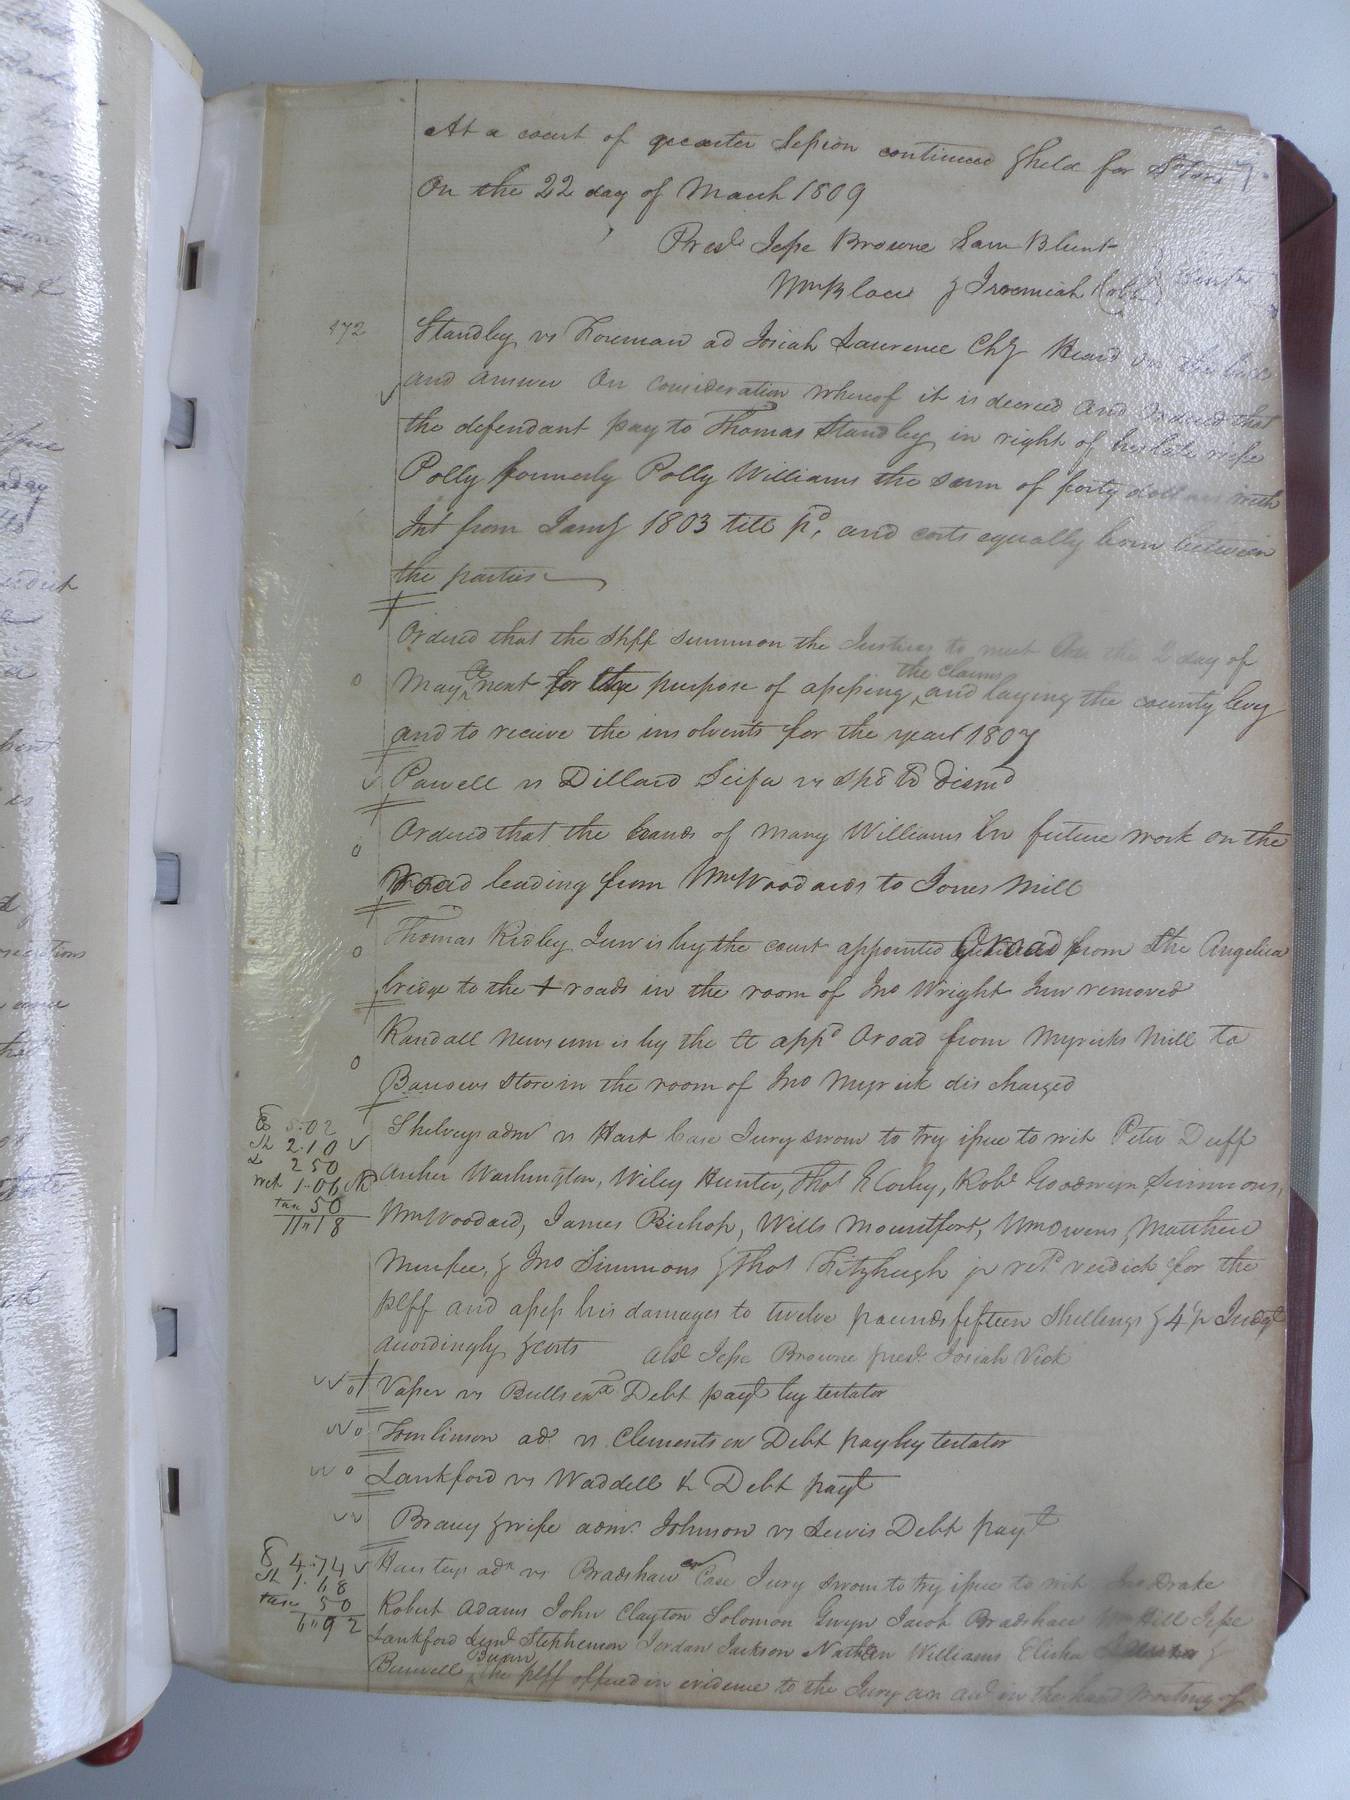 At a court of quarter Session continued & held for
On the 22 day of March 1809
Pres.t Jesse Browne Sam Blunt
Wm Blow & Jeremiah Cobb
872
Standley vs Foreman ad Josiah Laurence Chy Heard on the bill
and answer On consideration whereof it is decreed and ordered that
the defendant pay to Thomas Standley in right of his late wife
Polly formerly Polly Williams the sum of forty dollars with
Int from Jany 1803 till pd, and costs equally born between
the parties
Ordered that the Shff summon the Justices to meet on the 2 day of
May next for the purpose of assessing the claims and laying the county levy
and to receive the insolvents for the year 1807
Powell vs Dillard Scifa vs Dismd
Ordered that the hands of Mary Williams in future work on the
Road leading from Wm Woodards to Jones Mill
Thomas Ridley Jun is by the court appointed from the Angelica
bridge to the + roads in the room of Jno Wright Jun removed
Randall Newsum is by the Ct appd Oroad from Myricks Mill to
Barrows Store in the room of Jno Myrick discharged
5.02
2.10
2 50
1.06
tax 50
11"18
Shelveys adm vs Hart Case Jury sworn to try issue to wit Peter Duff
Archer Washington, Wiley Hunter, Thos E Corby, Robt Goodwyn Simmons,
Wm Woodard, James Bishop, Wills Mountfort, Wm Owens, Matthew
& Jno Simmons & Thos Fitzhugh jr retd verdict for the
Plff and assess his damages to twelve pounds fifteen Shillings & 4 Judgt
accordingly & costs abst Jesse Browne prest Josiah Vick
Vasser vs Bulls exx Debt payt by testator
Tomlinson ad vs Clements ex Debt pay by testator
Lankford vs Waddell & Debt payt
Bracy & wife adm Johnson vs Lewis Debt payt
4.74
1.68
tax 50
6"92
vs Bradshaw ex Case Jury sworn to try issue to wit Jno Drake
Robert Adams John Clayton Solomon Gwyn Jacob Bradshaw Wm Hill Jesse
Lankford Stephenson Jordan Jackson Nathan Williams Elisha &
Burwell the plff offered in evidence to the Jury an in the hand writing of